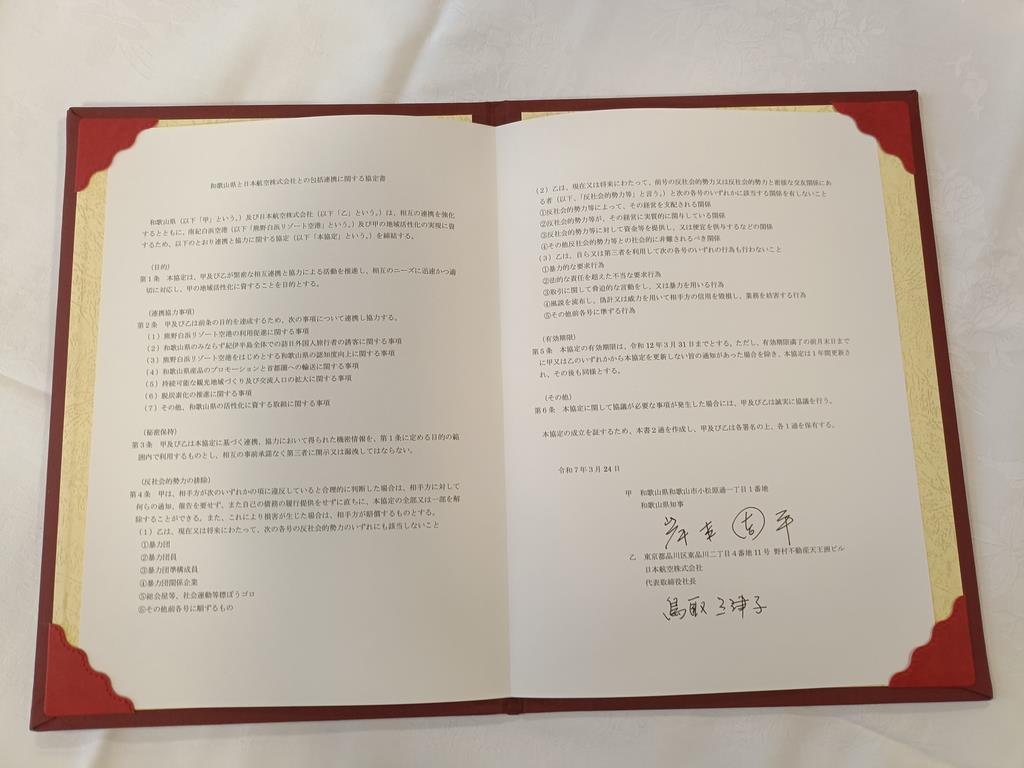 和歌山県と日本航空株式会社との包括連携に関する協定書
和歌山県（以下「甲」という。）及び日本航空株式会社（以下「乙」という。）は、相互の連携を強化
するとともに、南紀白浜空港（以下「熊野白浜リゾート空港」という。）及び甲の地域活性化の実現に資
するため、以下のとおり連携と協力に関する協定（以下「本協定」という。）を締結する。
（目的）
第１条　本協定は、甲及び乙が緊密な相互連携と協力による活動を推進し、相互のニーズに迅速かつ適
切に対応し、甲の地域活性化に資することを目的とする。
（連携協力事項）
第２条　甲及び乙は前条の目的を達成するため、次の事項について連携し協力する。
（１）熊野白浜リゾート空港の利用促進に関する事項
（２）和歌山県のみならず紀伊半島全体での訪日外国人旅行者の誘客に関する事項
（３）熊野白浜リゾート空港をはじめとする和歌山県の認知度向上に関する事項
（４）和歌山県産品のプロモーションと首都圏への輸送に関する事項
（５）持続可能な観光地域づくり及び交流人口の拡大に関する事項
（６）脱炭素化の推進に関する事項
（７）その他、和歌山県の活性化に資する取組に関する事項
（秘密保持）
第３条　甲及び乙は本協定に基づく連携、協力において得られた機密情報を、第１条に定める目的の範
囲内で利用するものとし、相互の事前承諾なく第三者に開示又は漏洩してはならない。
（反社会的勢力の排除）
第４条　甲は、相手方が次のいずれかの項に違反していると合理的に判断した場合は、相手方に対して
何らの通知、催告を要せず、また自己の債務の履行提供をせずに直ちに、本協定の全部又は一部を解
除することができる。また、これにより損害が生じた場合は、相手方が賠償するものとする。
（１）乙は、現在又は将来にわたって、次の各号の反社会的勢力のいずれにも該当しないこと
①暴力団
②暴力団員
③暴力団準構成員
④暴力団関係企業
⑤総会屋等、社会運動等標ぼうゴロ
⑥その他前各号に順ずるもの
（２）乙は、現在又は将来にわたって、前号の反社会的勢力又は反社会的勢力と密接な交友関係にあ
る者（以下、「反社会的勢力等」と言う。）と次の各号のいずれかに該当する関係を有しないこと
①反社会的勢力等によって、その経営を支配される関係
②反社会的勢力等が、その経営に実質的に関与している関係
③反社会的勢力等に対して資金等を提供し、又は便宜を供与するなどの関係
④その他反社会的勢力等との社会的に非難されるべき関係
（３）乙は、自ら又は第三者を利用して次の各号のいずれの行為も行わないこと
①暴力的な要求行為
②法的な責任を超えた不当な要求行為
③取引に関して脅迫的な言動をし、又は暴力を用いる行為
④風説を流布し、偽計又は威力を用いて相手方の信用を毀損し、業務を妨害する行為
⑤その他前各号に準ずる行為
（有効期限）
第５条　本協定の有効期限は、令和12年３月31日までとする。ただし、有効期限満了の前月末日まで
に甲又は乙のいずれかから本協定を更新しない旨の通知があった場合を除き、本協定は１年間更新さ
れ、その後も同様とする。
（その他）
第６条　本協定に関して協議が必要な事項が発生した場合には、甲及び乙は誠実に協議を行う。
本協定の成立を証するため、本書２通を作成し、甲及び乙は各署名の上、各１通を保有する。
令和７年３月24日
甲　和歌山県和歌山市小松原通一丁目１番地
和歌山県知事
岸本 周平
乙　東京都品川区東品川二丁目４番地11号 野村不動産天王洲ビル
日本航空株式会社
代表取締役社長
鳥取 三津子